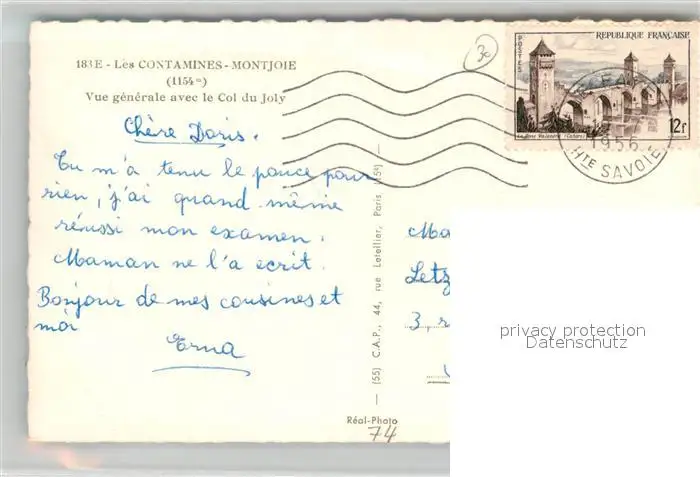 183E - Les CONTAMINES-MONTJOIE
(1154m)
Vue générale avec le Col du Joly
Chère Doris.
Tu m'a tenu le pouce pour
rien, j'ai quand même
réussi mon examen.
Maman ne l'a ecrit.
Bonjour de mes cousines et
moi
Erna
(55) C.A.P., 44, rue Letellier, Paris (15e)
Réal-Photo
74
30
REPUBLIQUE FRANÇAISE
POSTES
Le Pont Valentré (Cahors)
12f
1956
HTE SAVOIE
Ma
Letz
3, r
privacy protection
Datenschutz